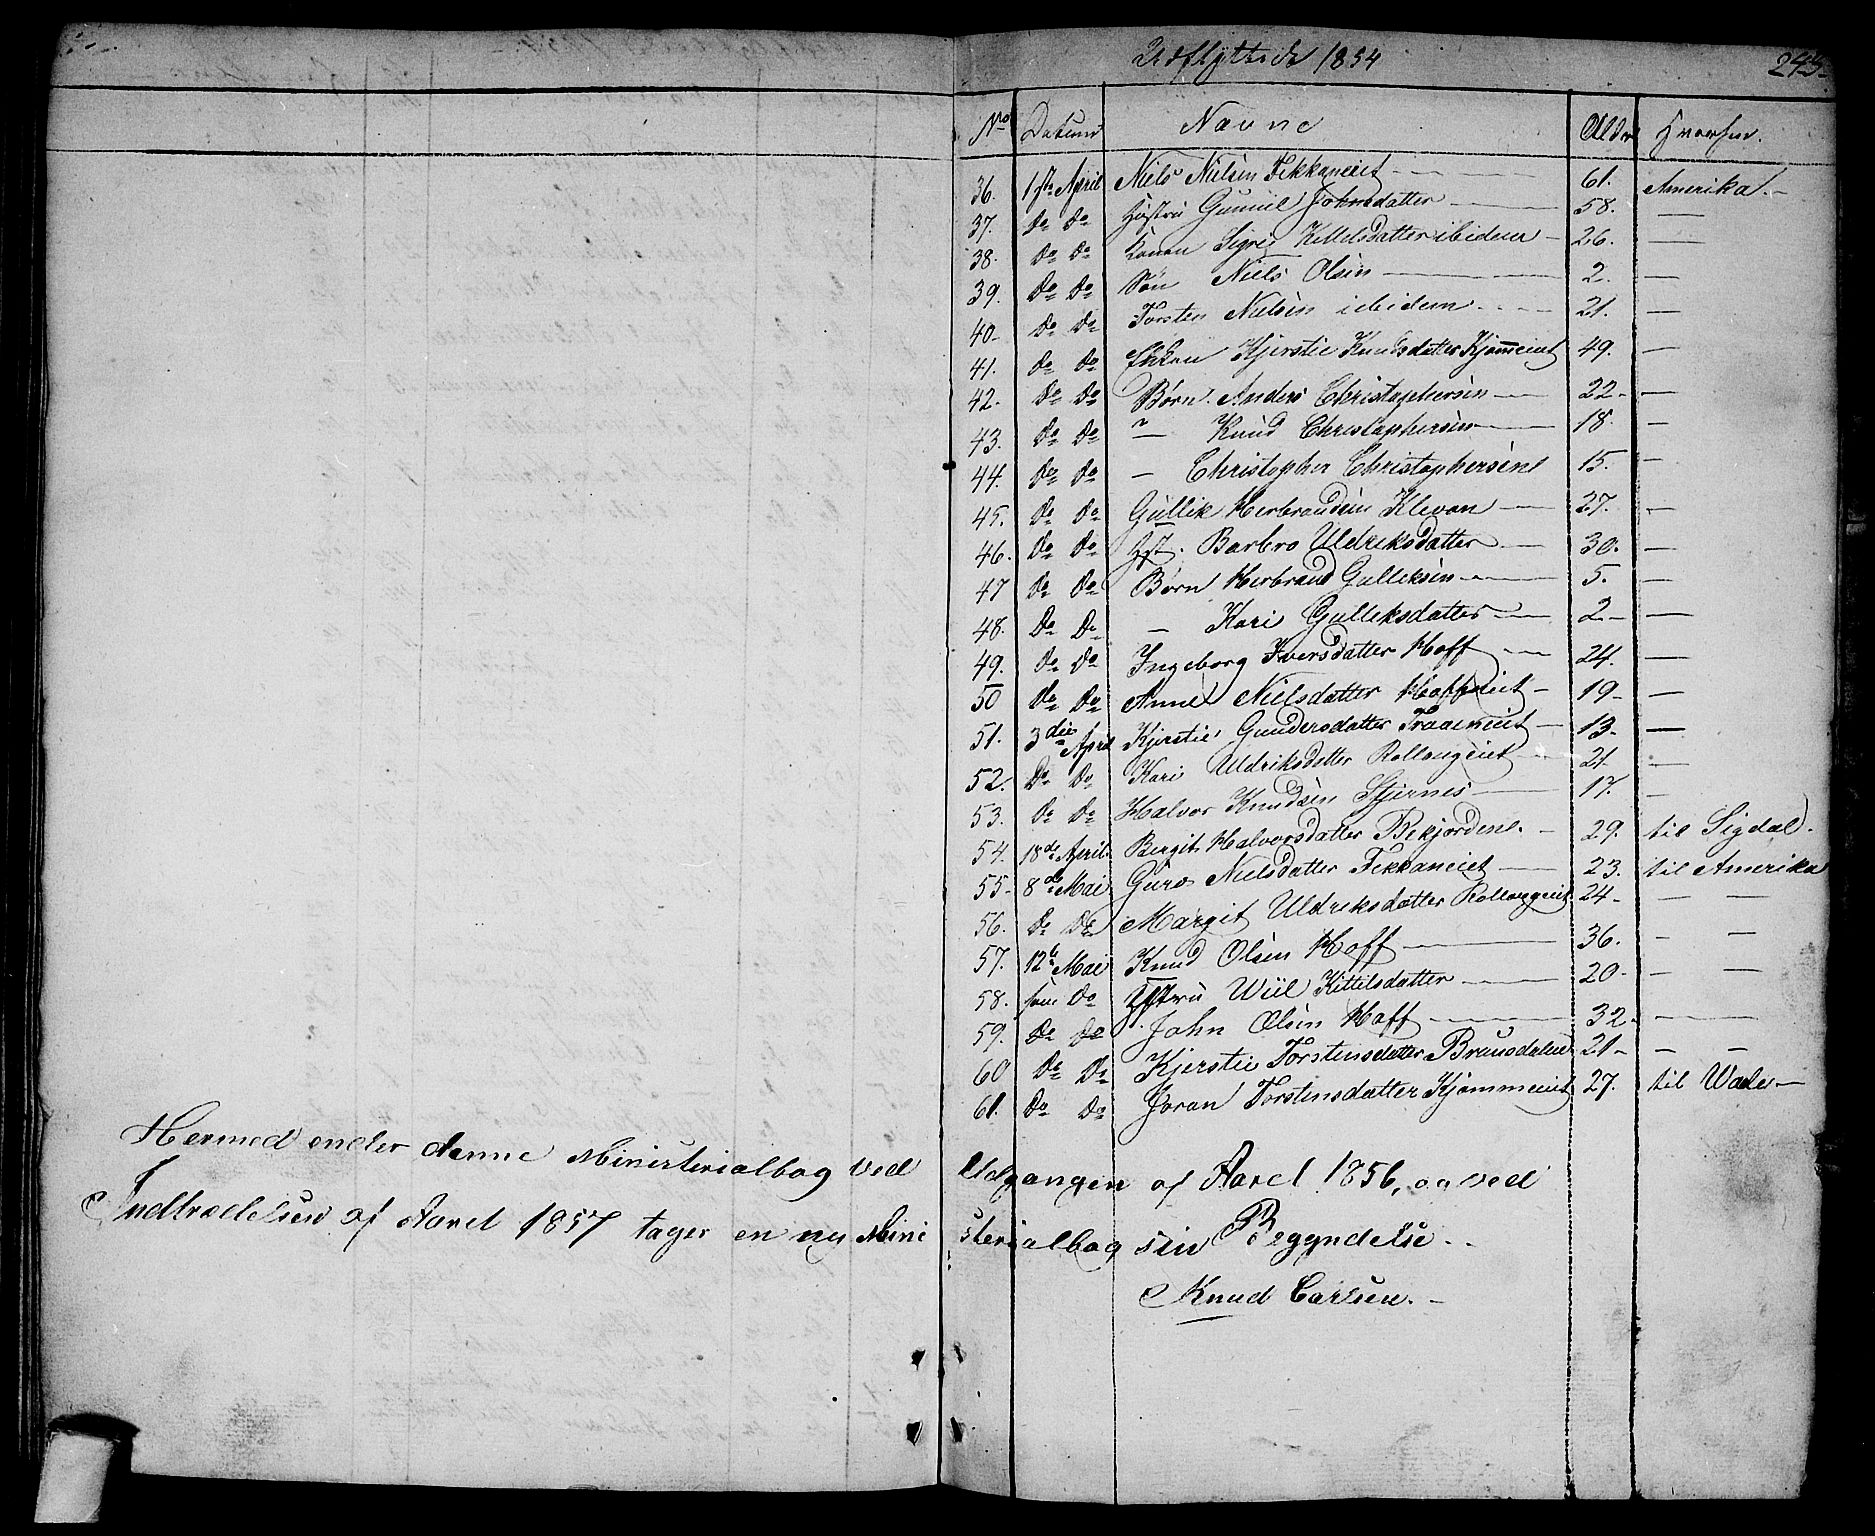 Udflyttede 1854
243.
No Datum Navne Alder Hvorhen.
36. 1ste April Niels Nielsen Fekkaneiet 61. Amerika.
37. Do Do Hustru Gunnil Johnsdatter 58. —
38. Do Do Konen Sigrie Kittelsdatter ibidem 26. —
39. Do Do Søn Niels Olsen 2. —
40. Do Do Torsten Nielsen ibidem 21. —
41. Do Do Enken Kjerstie Knudsdatter Kjommeiet 49. —
42. Do Do Børn. Anders Christophersen 22. —
43. Do Do — Knud Christophersen 18. —
44. Do Do — Christopher Christophersen 15. —
45. Do Do Gullik Herbrandsen Klevan 27. —
46. Do Do Hst. Barbro Uldriksdatter 30. —
47 Do Do Børn Herbrand Gulleksen 5. —
48. Do Do — Kari Gulleksdatter 2. —
49. Do Do Ingeborg Iversdatter Hoff 24. —
50 Do Do Anne Nielsdatter Hoffseiet 19. —
51. 3die April Kjerstie Gundersdatter Traaeneiet 13. —
52. Do Do Kari Uldriksdatter Rollaugeiet 21 —
53. Do Do Halvor Knudsen Stjernes 17. —
54. 18de April Bergit Halvorsdatter Bekjordene 29. til Sigdal.
55. 8de Mai Guro Nielsdatter Fekkaneiet 23. til Amerika
56. Do Do Margit Uldriksdatter Rollaugeiet 24. — —
57. 12te Mai Knud Olsen Hoff 36. — —
58. Do Hustru Wiil Kittilsdatter 20. — —
59. Do Do John Olsen Hoff 32. — —
60 Do Do Kjerstie Torstensdatter Braasdalen 21. — —
61. Do Do Joran Torstensdatter Kjømmeeiet 27. til —
Hermed ender denne Ministerialbog ved Udgangen af Aaret 1856, og ved
Indtrædelsen af Aaret 1857 tager en ny Ministerialbog sin Begyndelse.
Knud Carlsen.